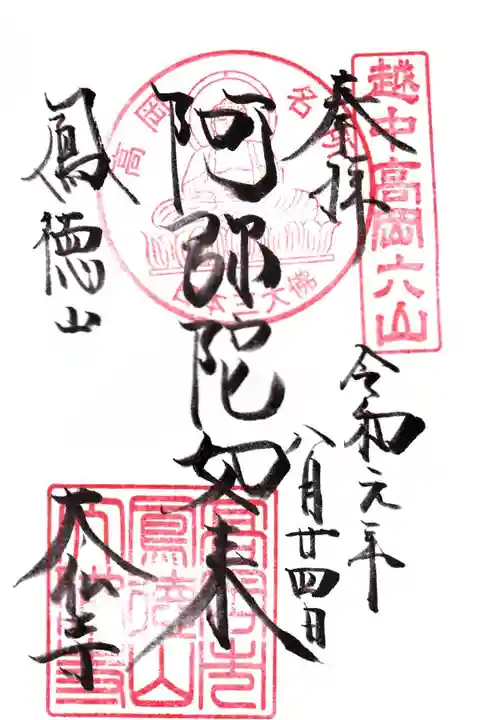 越中高岡六山
奉拝
令和元年
八月廿四日
阿弥陀如来
高岡名
日本三大佛
鳳徳山
大仏寺
鳳徳山